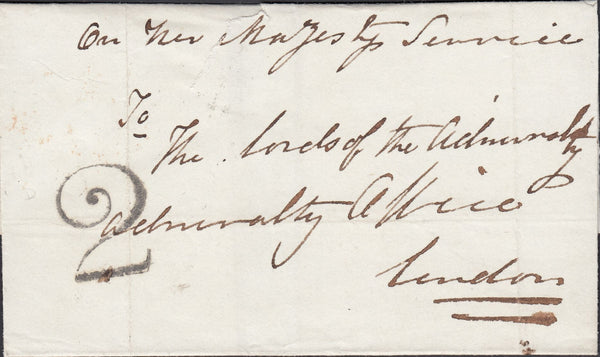 On Her Majestys Service
To
The Lords of the Admiralty
Admiralty Office
London
2